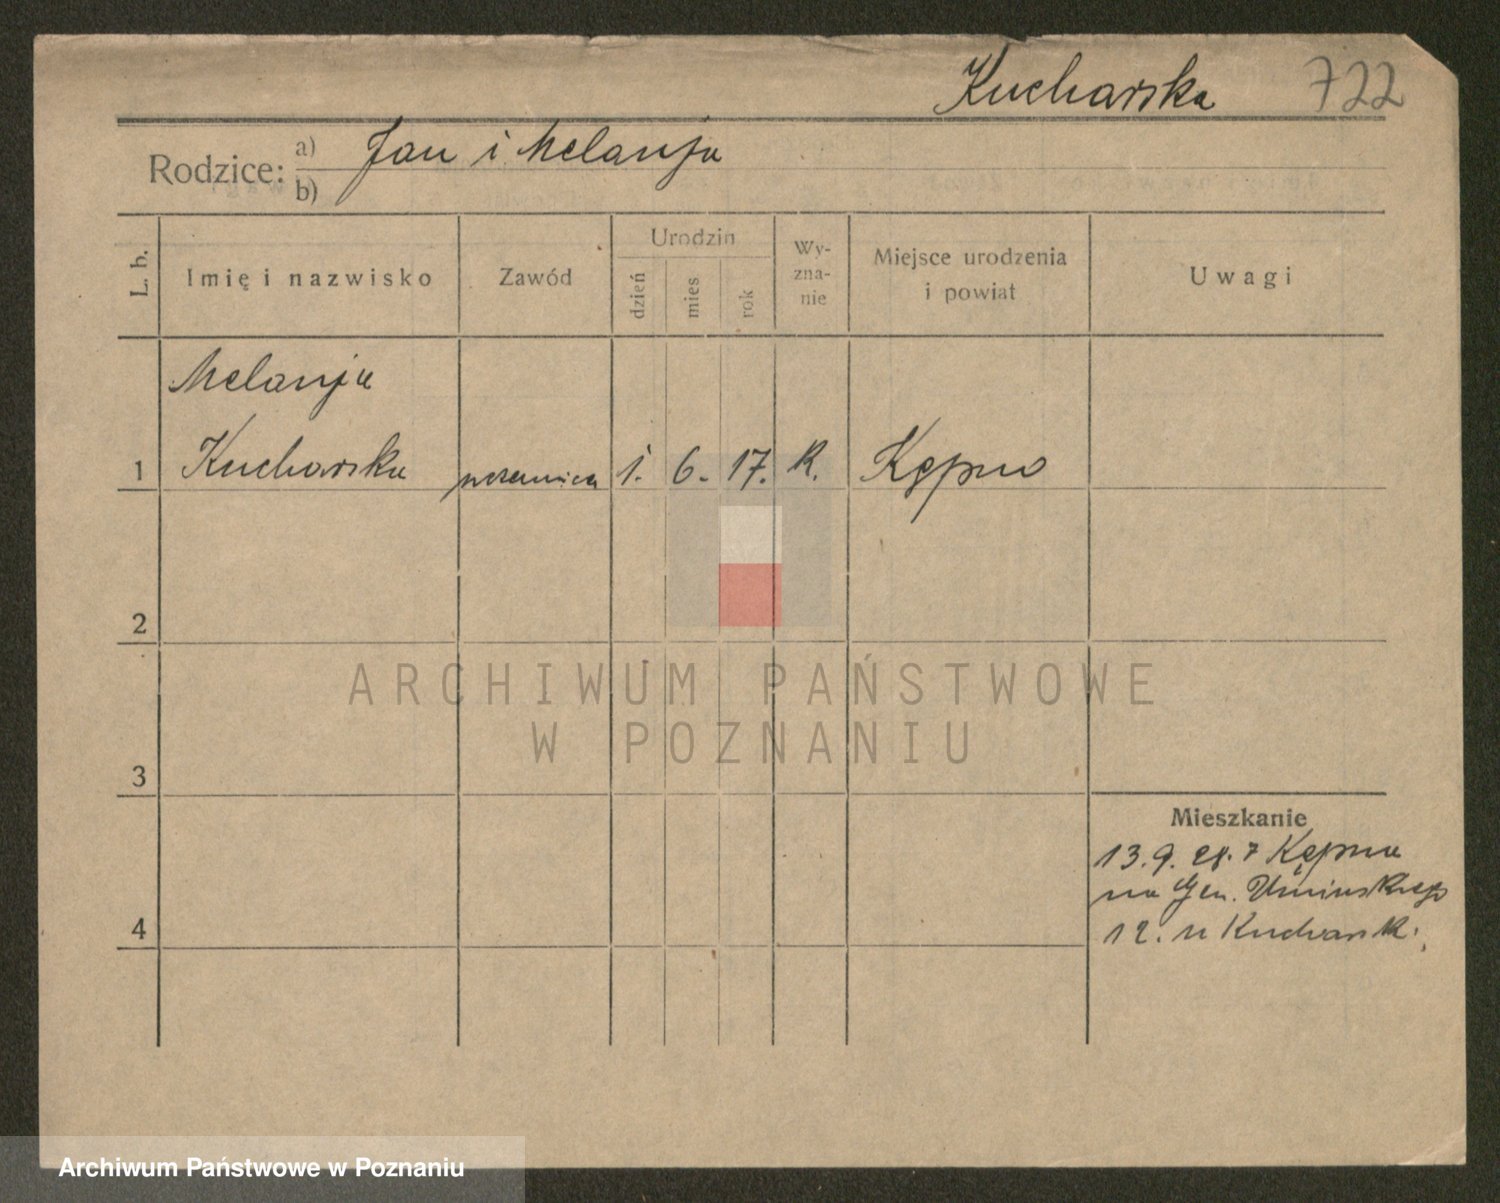 Kucharska 722
Rodzice: a) Jan i Melanja
b)
L. b.
Imię i nazwisko
Zawód
Urodzin
dzień
mies
rok
Wy-
zna-
nie
Miejsce urodzenia
i powiat
Uwagi
Melanja
1 Kucharska uczennica 1. 6. 17. K. Kępno
2
ARCHIWUM PAŃSTWOWE
W POZNANIU
3
Mieszkanie
13.9.28. z Kępna
na Gen. Umińskiego
12. u Kucharsk.
4
Archiwum Państwowe w Poznaniu